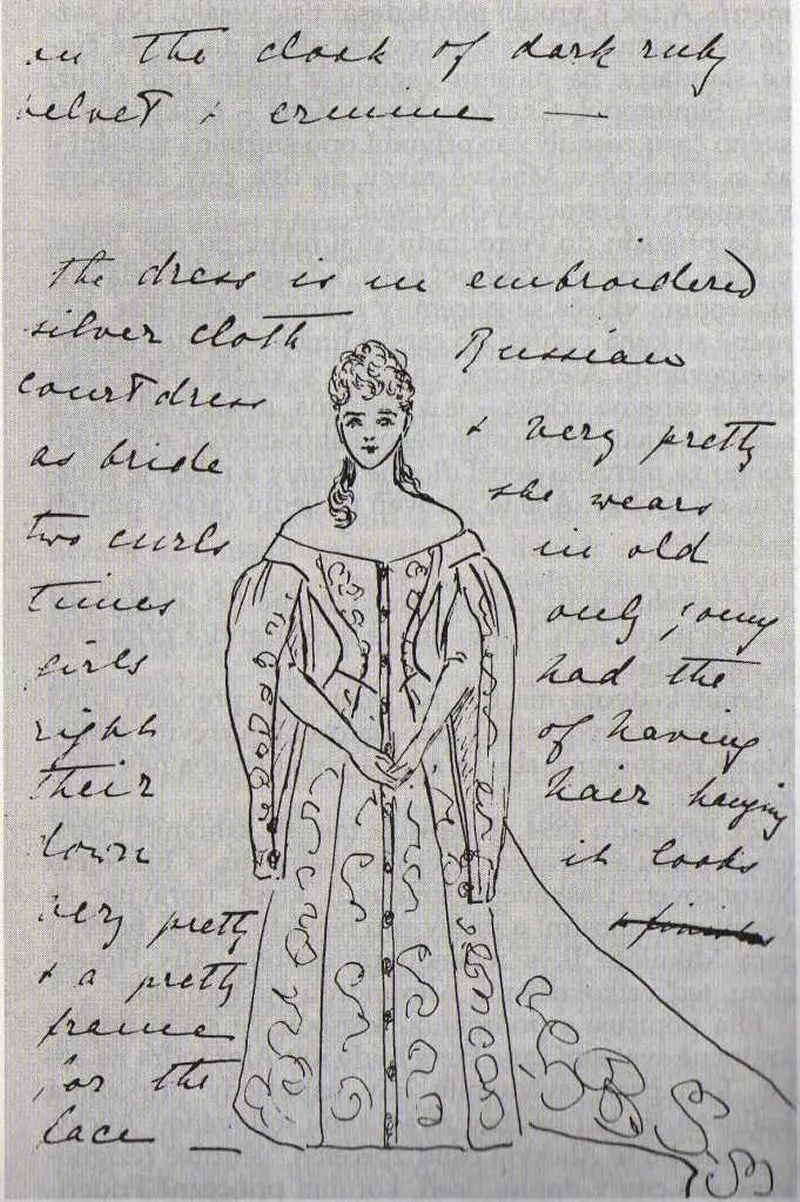 in the cloak of dark ruby
velvet & ermine —
The dress is in embroidered
silver cloth Russian
court dress & very pretty
as bride she wears
two curls in old
times only young
girls had the
right of having
their hair hanging
down it looks
very pretty
& a pretty
frame
for the
face —